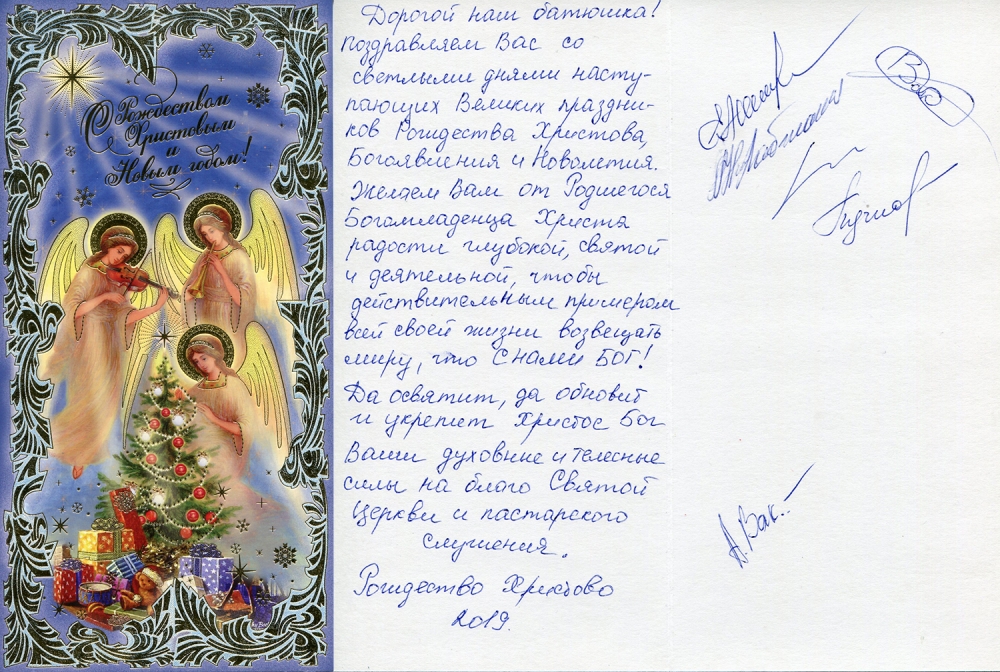 С Рождеством
Христовым
и
Новым годом!
Дорогой наш батюшка!
Поздравляем Вас со
светлыми днями насту-
пающих Великих праздни-
ков Рождества Христова,
Богоявления и Новолетия.
Желаем Вам от Родшегося
Богомладенца Христа
радости глубокой, святой
и деятельной, чтобы
действительным примером
всей своей жизни возвещать
миру, что С НАМИ БОГ!
Да освятит, да обновит
и укрепит Христос Бог
Ваши духовные и телесные
силы на благо Святой
Церкви и пастарского
служения.
Рождество Христово
2019.